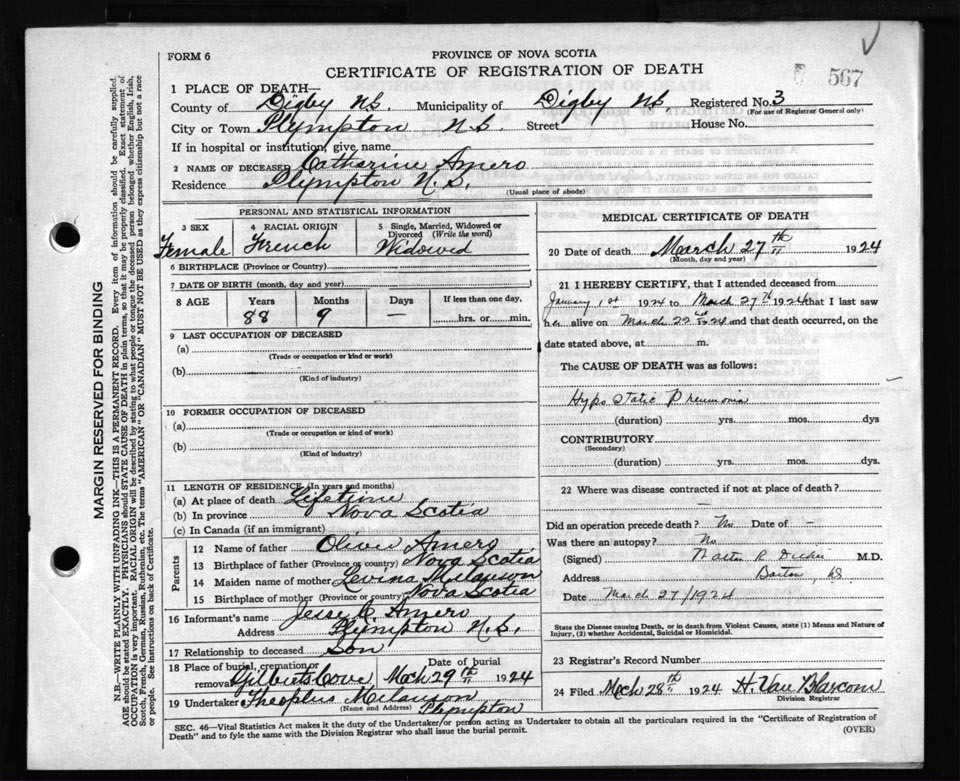 FORM 6
PROVINCE OF NOVA SCOTIA
CERTIFICATE OF REGISTRATION OF DEATH
567
1 PLACE OF DEATH—
County of Digby N.S. Municipality of Digby N.S. Registered No. 3
(For use of Registrar General only)
City or Town Plympton N.S. Street House No.
If in hospital or institution, give name
2 NAME OF DECEASED Catherine Amero
Residence Plympton N.S.
(Usual place of abode)
PERSONAL AND STATISTICAL INFORMATION
3 SEX 4 RACIAL ORIGIN 5 Single, Married, Widowed or Divorced (Write the word)
Female French Widowed
6 BIRTHPLACE (Province or Country)
7 DATE OF BIRTH (month, day and year)
8 AGE Years Months Days If less than one day,
88 9 — hrs. or min.
9 LAST OCCUPATION OF DECEASED
(a)
(Trade or occupation or kind or work)
(b)
(Kind of industry)
10 FORMER OCCUPATION OF DECEASED
(a)
(Trade or occupation or kind of work)
(b)
(Kind of industry)
11 LENGTH OF RESIDENCE (In years and months)
(a) At place of death Lifetime
(b) In province Nova Scotia
(c) In Canada (if an immigrant)
Parents
12 Name of father Oliver Amero
13 Birthplace of father (Province or country) Nova Scotia
14 Maiden name of mother Levina Melanson
15 Birthplace of mother (Province or country) Nova Scotia
16 Informant's name Jesse C. Amero
Address Plympton N.S.
17 Relationship to deceased Son
18 Place of burial, cremation or removal Gilberts Cove Date of burial Mch 29th 1924
19 Undertaker Theoplis Melanson
(Name and Address) Plympton
MEDICAL CERTIFICATE OF DEATH
20 Date of death March 27th 1924
(Month, day and year)
21 I HEREBY CERTIFY, that I attended deceased from
January 1st 1924 to March 27th 1924 that I last saw
her alive on March 1924 and that death occurred, on the
date stated above, at m.
The CAUSE OF DEATH was as follows:
Hypostatic Pneumonia
(duration) yrs. mos. dys
CONTRIBUTORY
(Secondary)
(duration) yrs. mos. dys.
22 Where was disease contracted if not at place of death?
—
Did an operation precede death? No Date of —
Was there an autopsy? No
(Signed) Walter R. M.D.
Address Barton, N.S.
Date March 27/1924
State the Disease causing Death, or in death from Violent Causes, state (1) Means and Nature of
Injury, (2) whether Accidental, Suicidal or Homicidal.
23 Registrar's Record Number
24 Filed Mch 28th 1924 H. Van Blarcom
Division Registrar
SEC. 46—Vital Statistics Act makes it the duty of the Undertaker/or person acting as Undertaker to obtain all the particulars required in the "Certificate of Registration of
Death" and to fyle the same with the Division Registrar who shall issue the burial permit. (OVER)
MARGIN RESERVED FOR BINDING
N.B.—WRITE PLAINLY WITH UNFADING INK—THIS IS A PERMANENT RECORD. Every item of information should be carefully supplied.
AGE should be stated EXACTLY. PHYSICIANS should STATE CAUSE OF DEATH in plain terms, so that it may be properly classified. Exact statement of
OCCUPATION is very important. RACIAL ORIGIN will be described by stating to what people or tongue the deceased person belonged whether English, Irish,
Scotch, French, German, Russian, Ruthenian, etc. The terms "AMERICAN" OR "CANADIAN" MUST NOT BE USED as they express citizenship but not a race
or people. See instructions on back of Certificate.